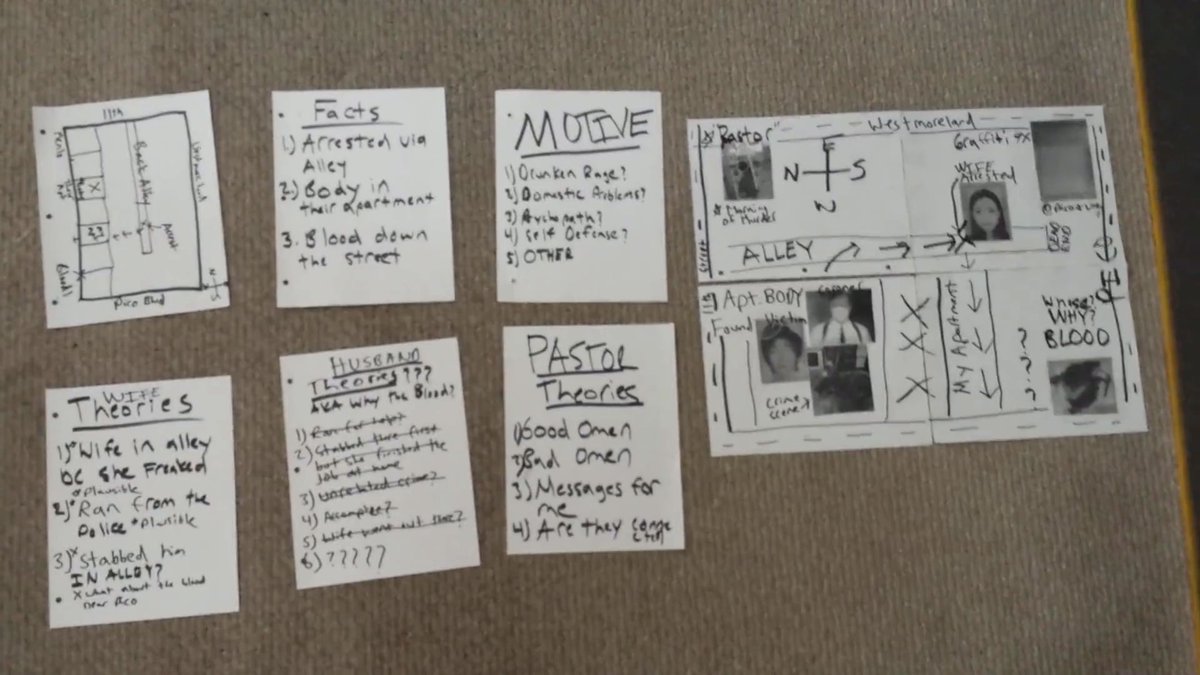 11th
Back Alley
Arrest
Blood
Pico Blvd
N
S
Facts
1.) Arrested via
Alley
2.) Body in
their apartment
3. Blood down
the street
MOTIVE
1) Drunken Rage?
2) Domestic Problems?
3) Psychopath?
4) Self Defense?
5) OTHER
WIFE
Theories
1) Wife in alley
bc she Freaked
Plausible
2) Ran from the
Police Plausible
3) x Stabbed him
IN ALLEY?
x what about the blood
near Pico
HUSBAND
Theories???
AKA Why the Blood?
1) Ran for help?
2) Stabbed there first
but she finished the
job at home
3) Unrelated crime?
4) Accomplice?
5) Wife went out there?
6) ?????
PASTOR
Theories
1) Good Omen
2) Bad Omen
3) Messages for
me
4) Are they connected
"Pastor"
Westmoreland
Graffiti
N
S
WIFE
Arrested
Morning
of Murder
Street
ALLEY
DEAD
END
11th
Apt. BODY
Found
Victim
Coroner
Crime
Scene
XXX
My Apartment
? ? ? ?
Whose?
WHY?
BLOOD